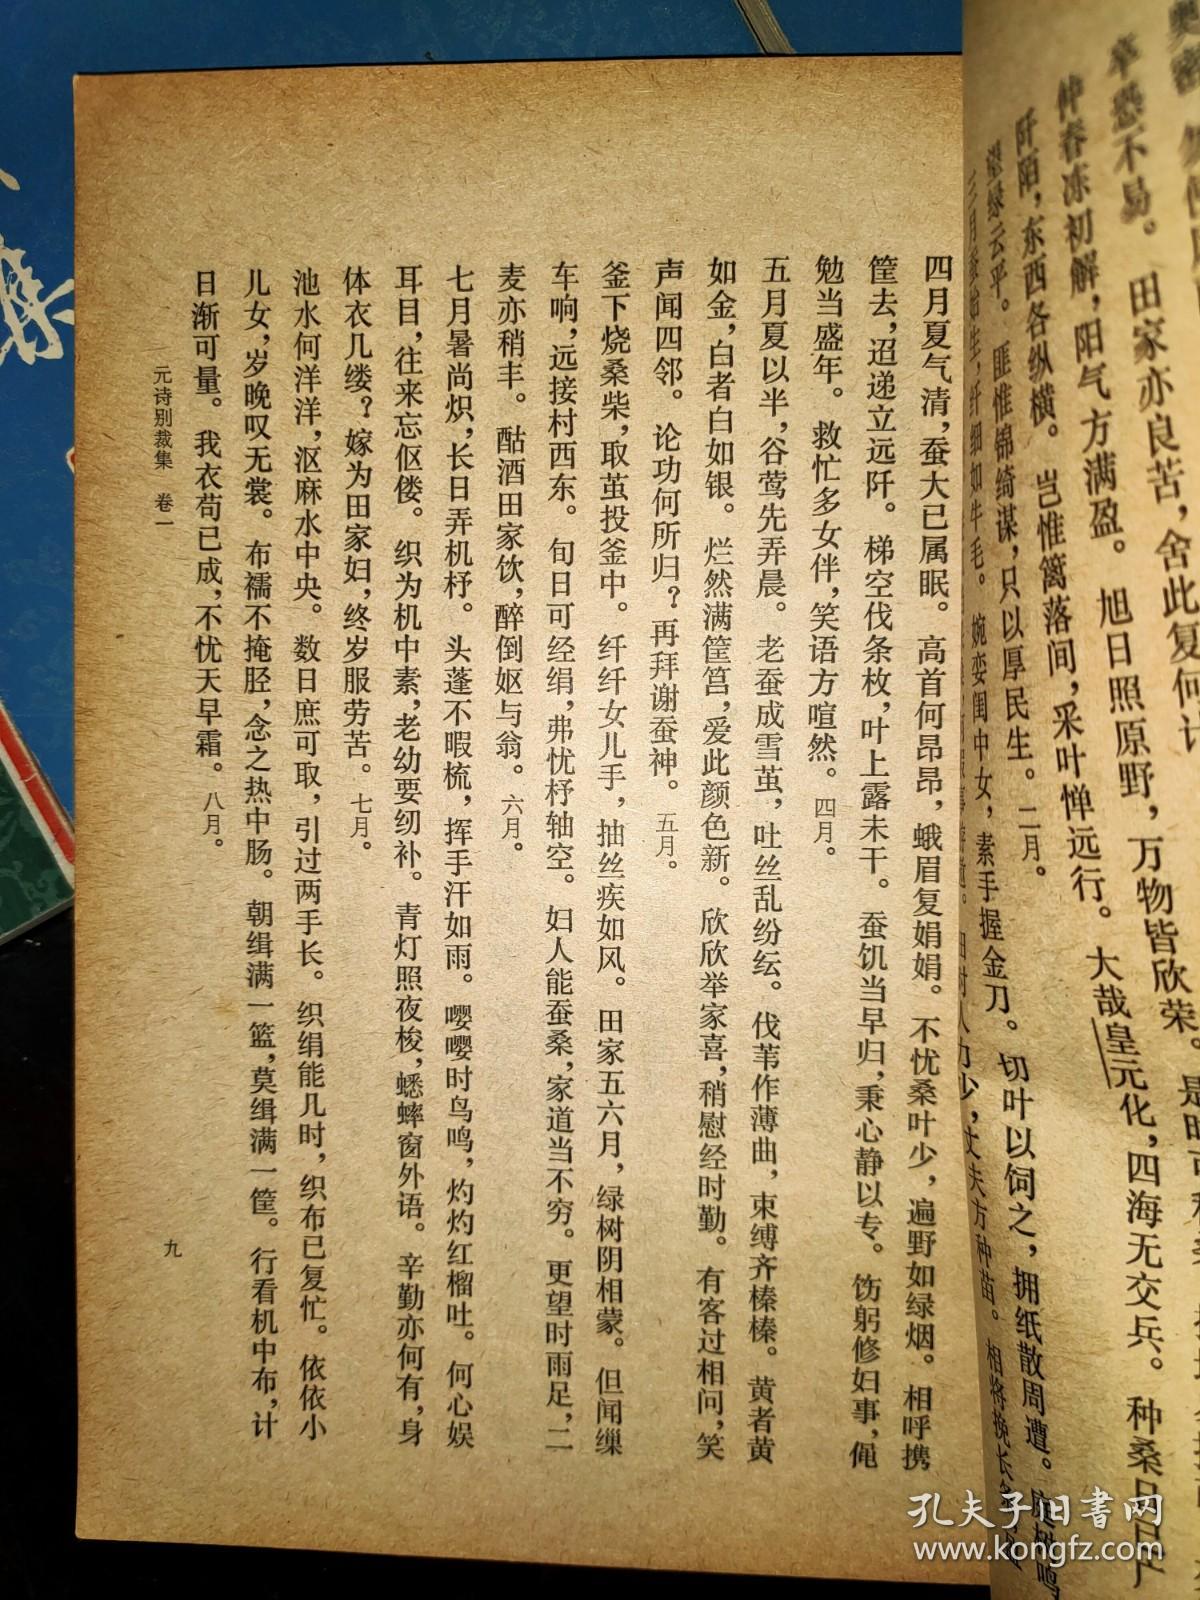 卒恐不易。田家亦良苦，舍此复何计
仲春冻初解，阳气方满盈。旭日照原野，万物皆欣荣。是时可种桑
阡陌，东西各纵横。岂惟篱落间，采叶惮远行。大哉皇元化，四海无交兵。种桑日已广
望绿云平。匪惟锦绮谋，只以厚民生。二月。
三月蚕始生，纤细如牛毛。婉娈闺中女，素手握金刀。切叶以饲之，拥纸散周遭。庭树鸣
人力少，丈夫方种苗。相将挽长条
四月夏气清，蚕大已属眠。高首何昂昂，蛾眉复娟娟。不忧桑叶少，遍野如绿烟。相呼携
筐去，迢递立远阡。梯空伐条枚，叶上露未干。蚕饥当早归，秉心静以专。饬躬修妇事，黾
勉当盛年。救忙多女伴，笑语方喧然。四月。
五月夏以半，谷莺先弄晨。老蚕成雪茧，吐丝乱纷纭。伐苇作薄曲，束缚齐榛榛。黄者黄
如金，白者白如银。烂然满筐筥，爱此颜色新。欣欣举家喜，稍慰经时勤。有客过相问，笑
声闻四邻。论功何所归？再拜谢蚕神。五月。
釜下烧桑柴，取茧投釜中。纤纤女儿手，抽丝疾如风。田家五六月，绿树阴相蒙。但闻缫
车响，远接村西东。旬日可经绢，弗忧杼轴空。妇人能蚕桑，家道当不穷。更望时雨足，二
麦亦稍丰。酤酒田家饮，醉倒妪与翁。六月。
七月暑尚炽，长日弄机杼。头蓬不暇梳，挥手汗如雨。嘤嘤时鸟鸣，灼灼红榴吐。何心娱
耳目，往来忘伛偻。织为机中素，老幼要纫补。青灯照夜梭，蟋蟀窗外语。辛勤亦何有，身
体衣几缕？嫁为田家妇，终岁服劳苦。七月。
池水何洋洋，沤麻水中央。数日庶可取，引过两手长。织绢能几时，织布已复忙。依依小
儿女，岁晚叹无裳。布襦不掩胫，念之热中肠。朝缉满一篮，莫缉满一筐。行看机中布，计
日渐可量。我衣苟已成，不忧天早霜。八月。
元诗别裁集 卷一
九
孔夫子旧书网
www.kongfz.com